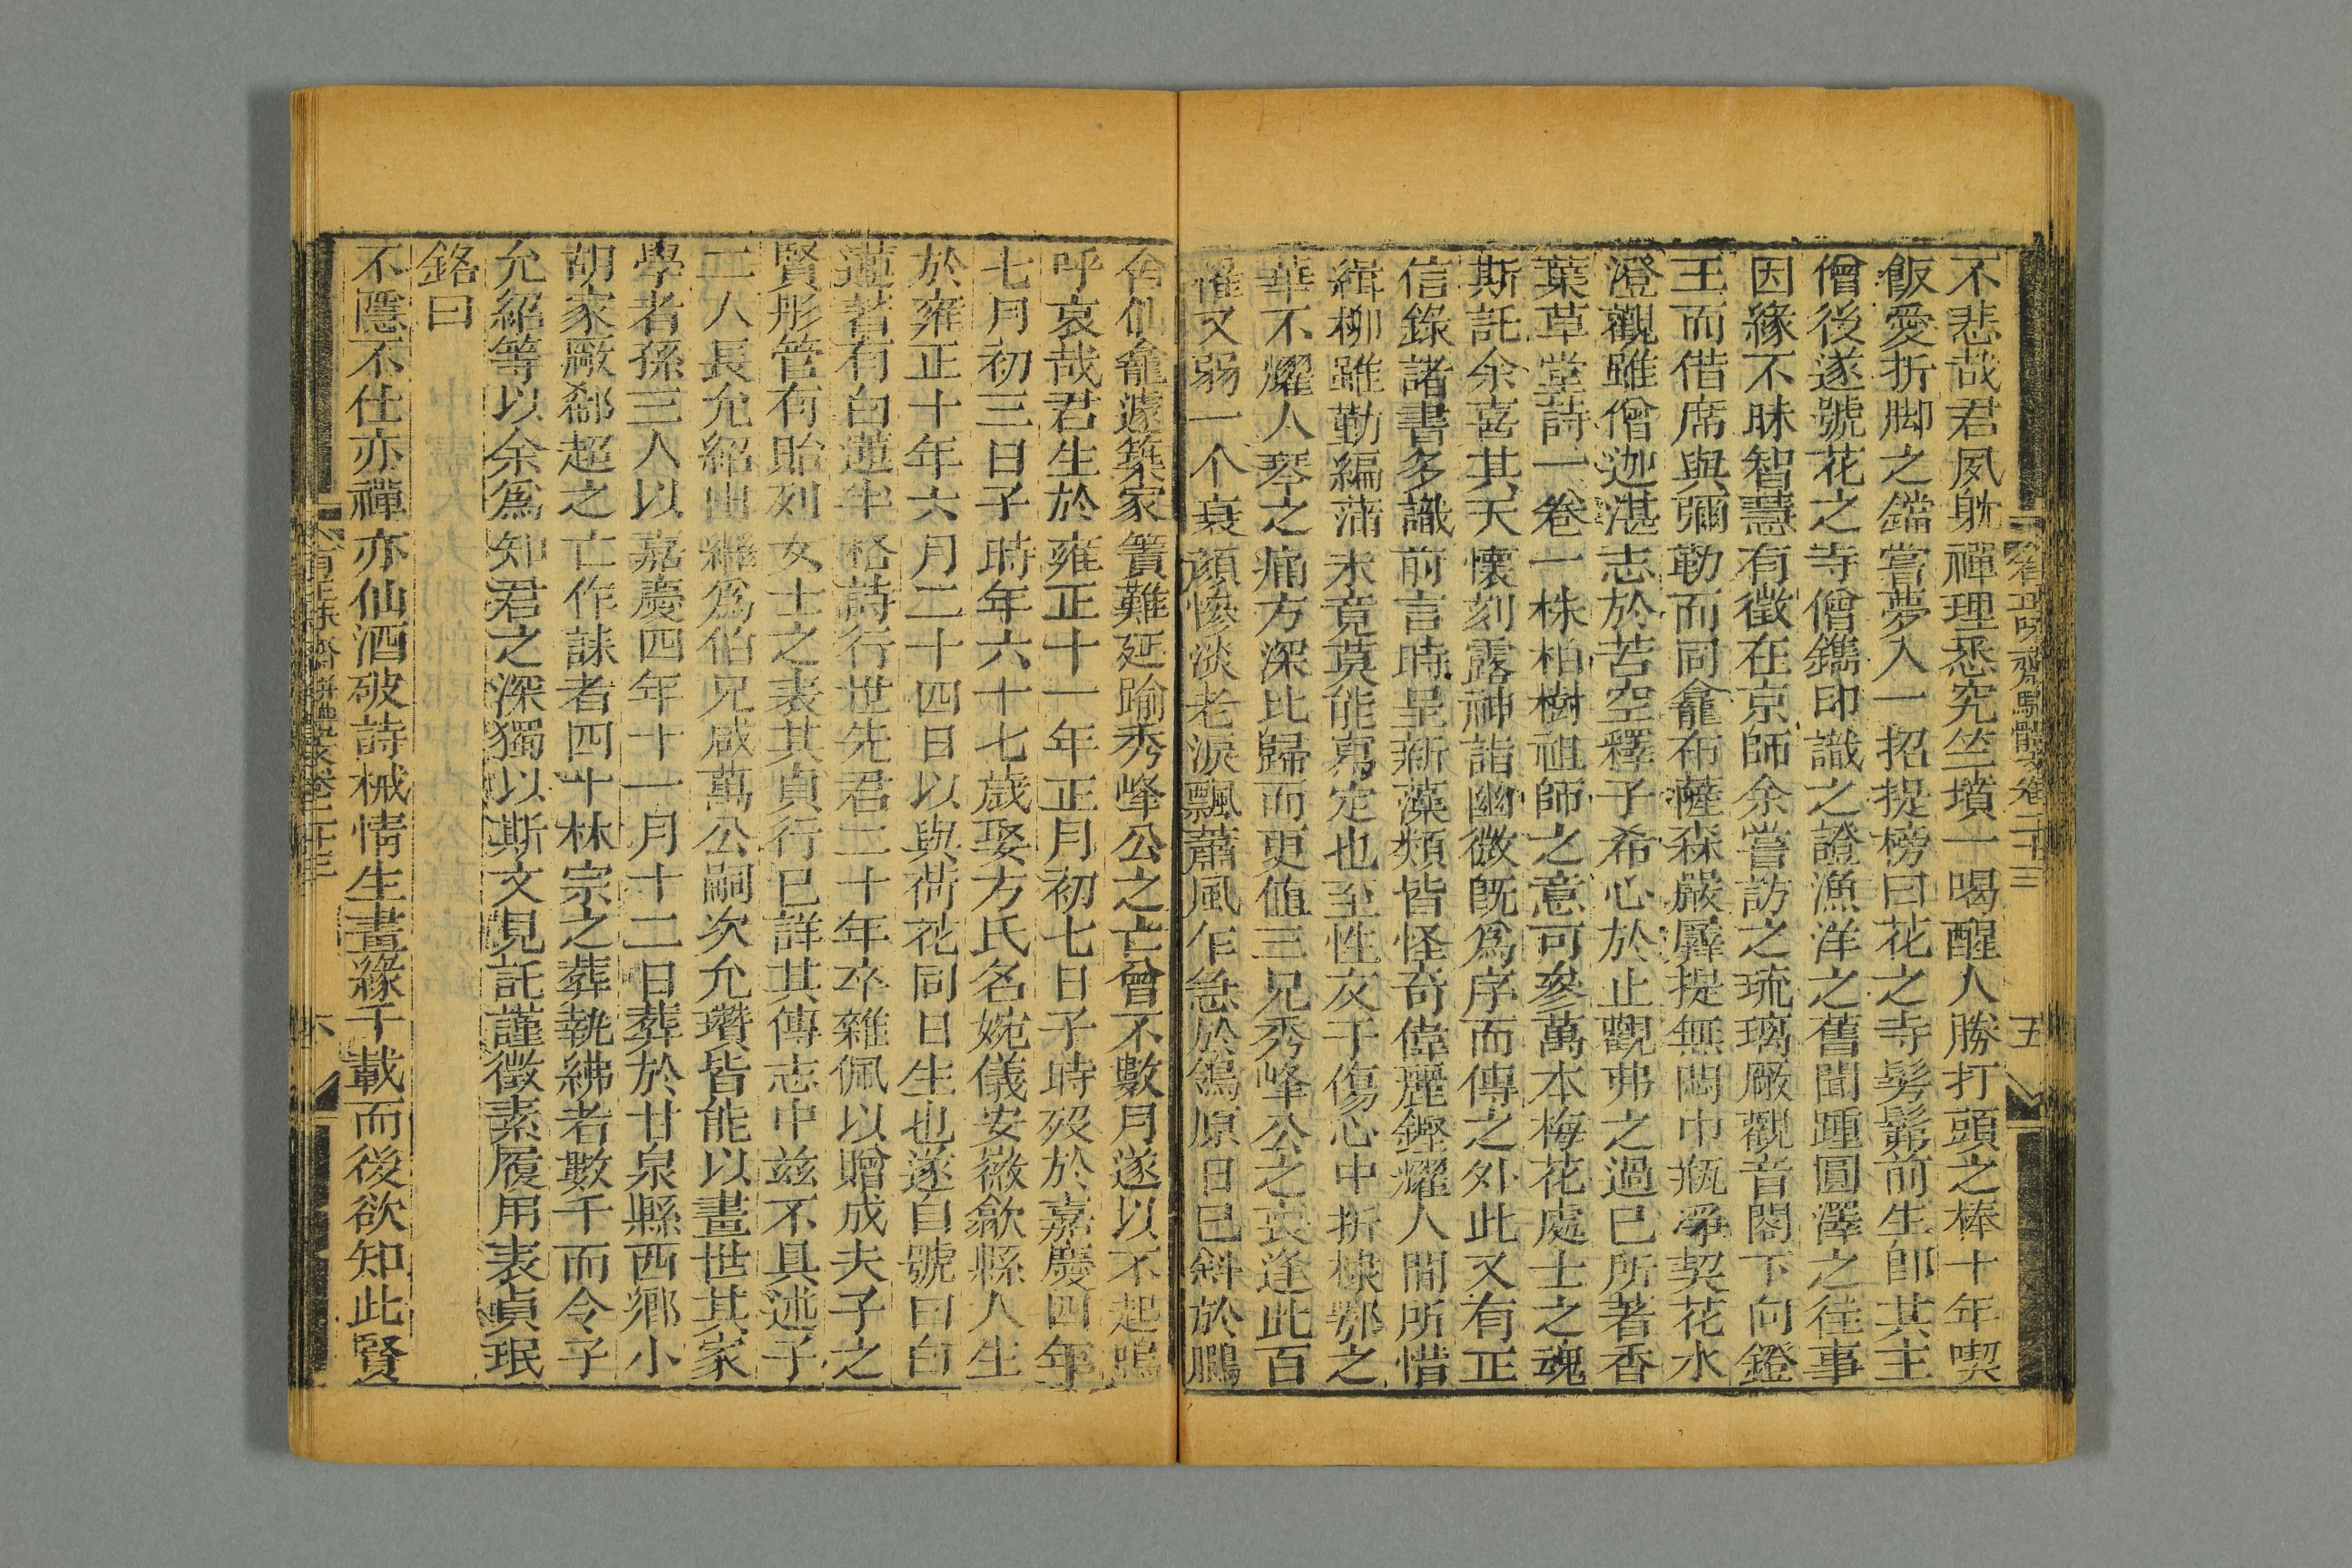 有正味齋駢體文卷二十三
五
不悲哉君夙躭禪理悉究竺墳一喝醒人勝打頭之棒十年喫
飯愛折脚之鐺嘗夢入一招提榜曰花之寺髣髴前生卽其主
僧後遂號花之寺僧鐫印識之證漁洋之舊聞踵圓澤之往事
因緣不昧智慧有徵在京師余嘗訪之琉璃厰觀音閣下向鐙
王而借席與彌勒而同龕布薩森嚴羼提無閡巾瓶淨契花水
澄觀雖僧迦湛志於苦空釋子希心於止觀弗之過已所著香
葉草堂詩一卷一株柏樹祖師之意可參萬本梅花處士之魂
斯託余喜其天懷刻露神詣幽微旣爲序而傳之外此又有正
信錄諸書多識前言時呈新藻類皆怪奇偉麗鏗耀人間所惜
緝柳雖勤編蒲未竟莫能寫定也至性友于傷心中折棣鄂之
華不燿人琴之痛方深比歸而更値三兄秀峰公之喪逢此百
罹又弱一个衰顏慘淡老淚飄蕭風乍急於鴒原日已斜於鵩
舍仙龕遽築家簣難延踰秀峰公之亡曾不數月遂以不起嗚
呼哀哉君生於雍正十一年正月初七日子時歿於嘉慶四年
七月初三日子時年六十七歲娶方氏名婉儀安徽歙縣人生
於雍正十年六月二十四日以與荷花同日生也遂自號曰白
蓮著有白蓮半格詩行世先君二十年卒雜佩以贈成夫子之
賢彤管有貽列女士之表其貞行已詳其傳志中茲不具述子
二人長允紹出繼爲伯兄咸萬公嗣次允瓚皆能以畫世其家
學者孫三人以嘉慶四年十一月十二日葬於甘泉縣西鄉小
胡家厰郗超之亡作誄者四十林宗之葬執紼者數千而令子
允紹等以余爲知君之深獨以斯文見託謹徵素履用表貞珉
銘曰
不隱不仕亦禪亦仙酒破詩械情生畫緣千載而後欲知此賢
有正味齋駢體文卷二十三
六